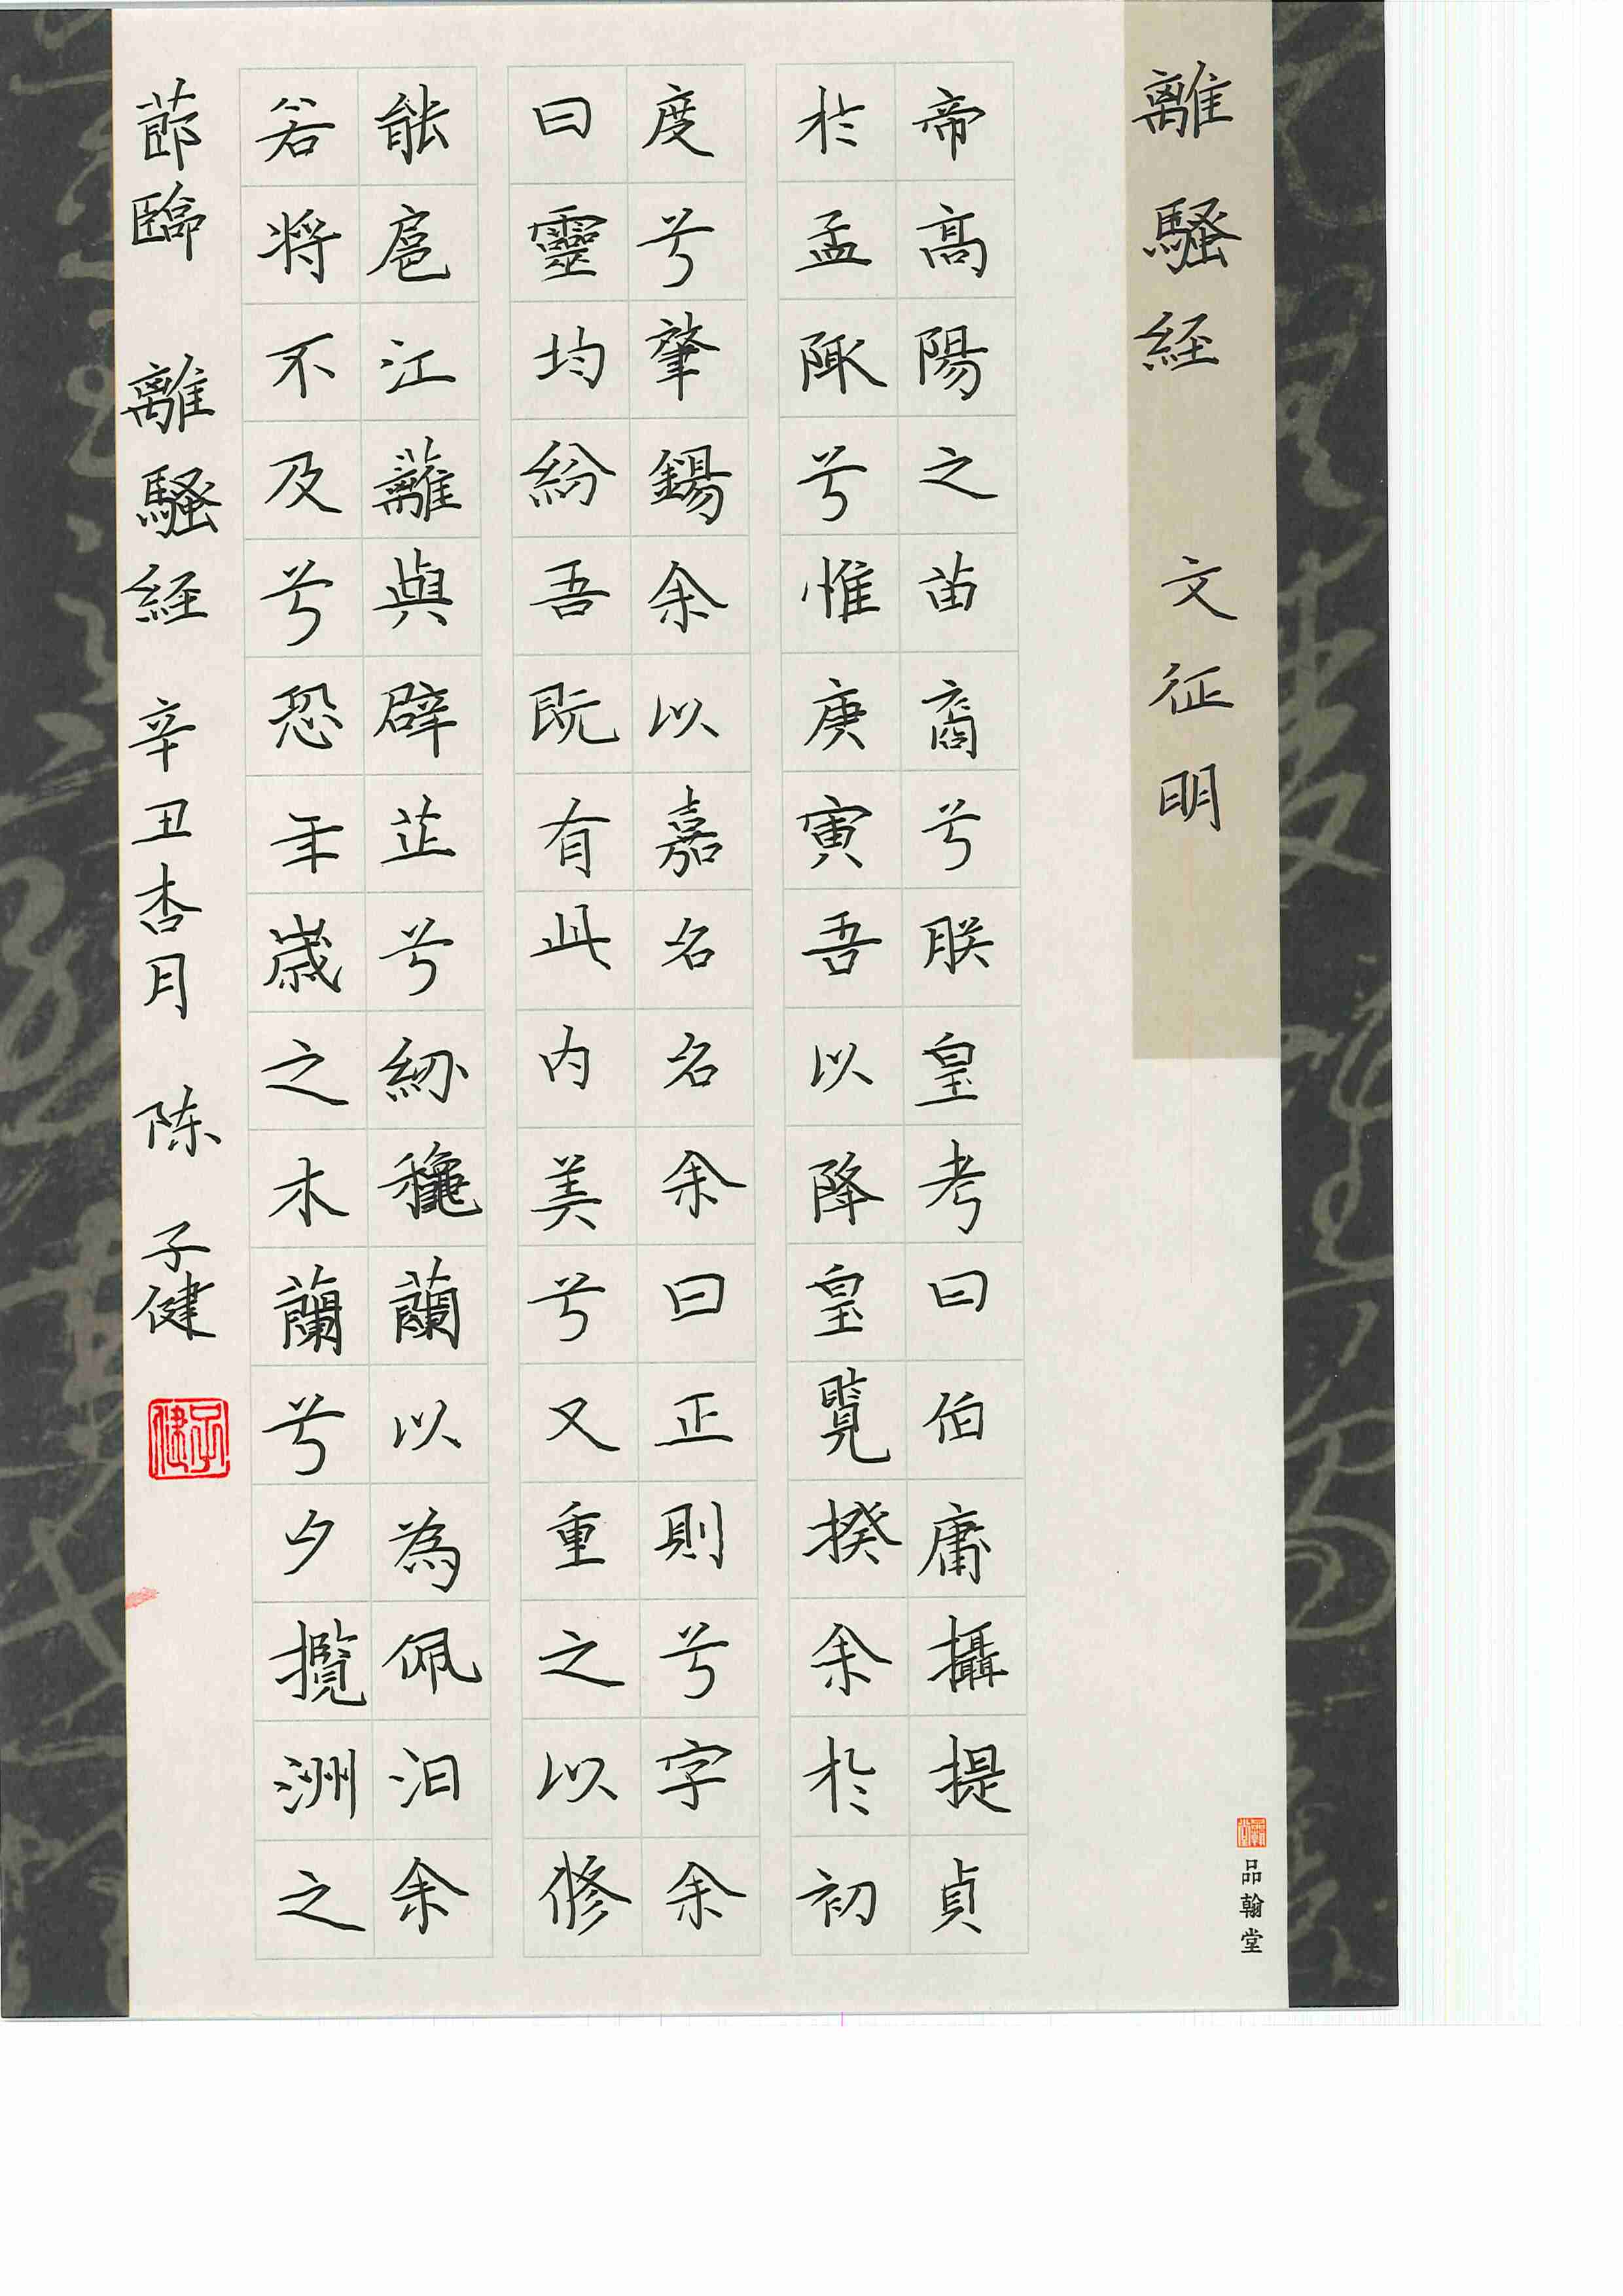 離騷经 文征明
帝高陽之苗裔兮朕皇考曰伯庸攝提貞
於孟陬兮惟庚寅吾以降皇覽揆余於初
度兮肇錫余以嘉名名余曰正則兮字余
曰靈均紛吾既有此内美兮又重之以修
能扈江蘺與辟芷兮紉穐蘭以為佩汩余
若將不及兮恐年歲之木蘭兮夕攬洲之
節臨 離騷经 辛丑杏月 陈子健
子健
品翰堂